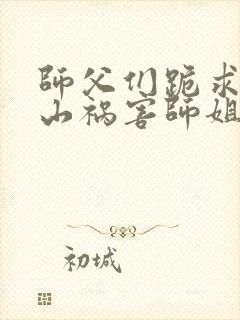 師父们跪求
山祸害師姐
初城